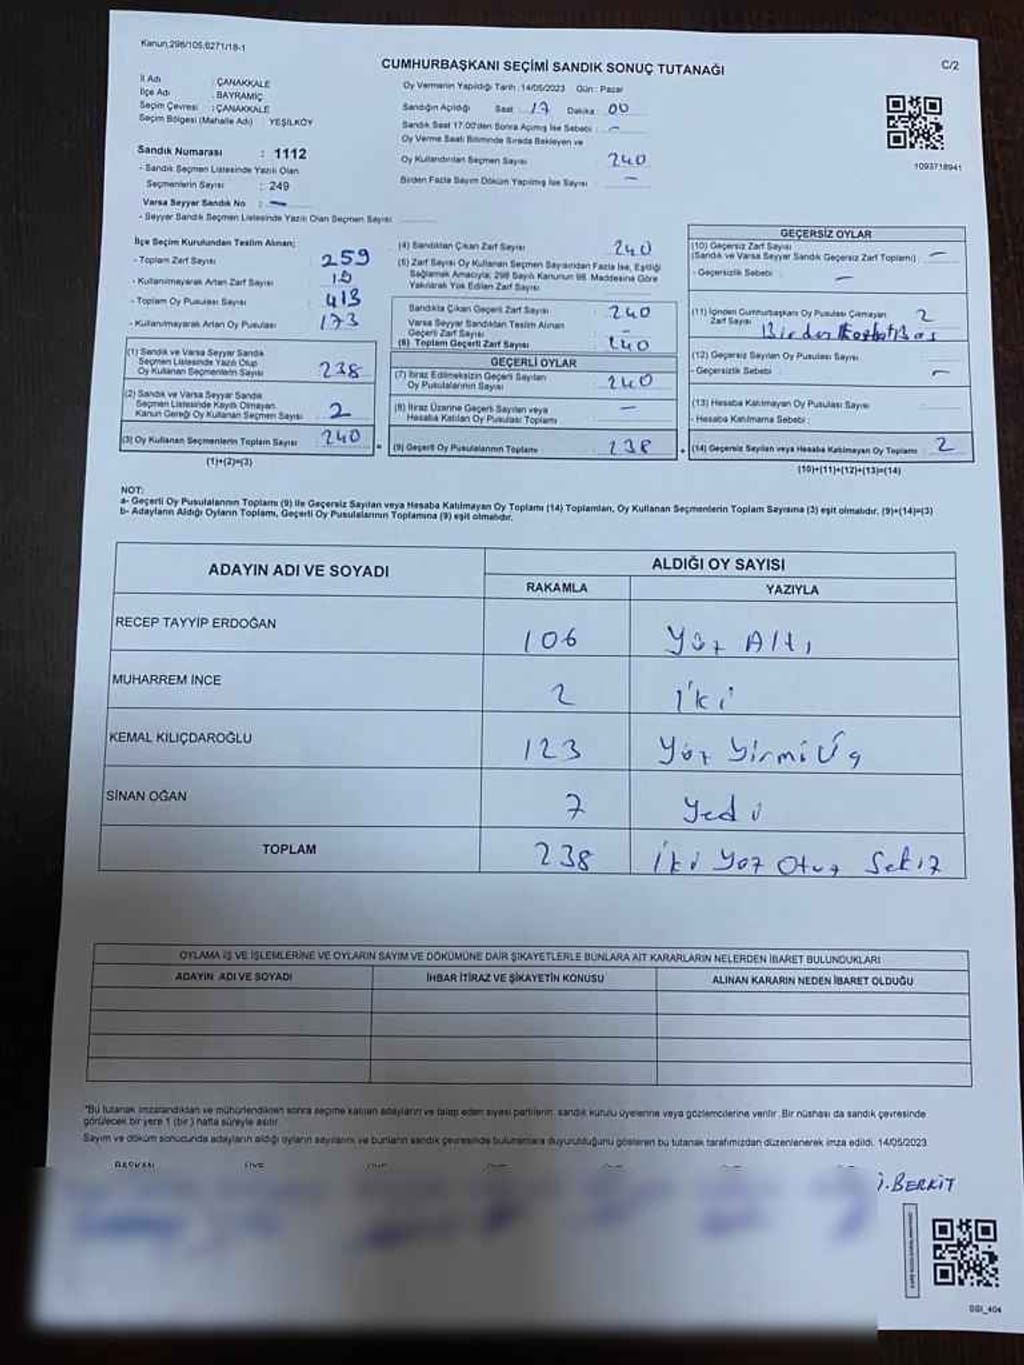 Kanun;298/105,6271/18-1
CUMHURBAŞKANI SEÇİMİ SANDIK SONUÇ TUTANAĞI
C/2
İl Adı : ÇANAKKALE
İlçe Adı : BAYRAMİÇ
Seçim Çevresi : ÇANAKKALE
Seçim Bölgesi (Mahalle Adı) YEŞİLKÖY
Oy Vermenin Yapıldığı Tarih : 14/05/2023 Gün : Pazar
Sandığın Açıldığı Saat : 17 Dakika : 00
Sandık Saat 17:00'den Sonra Açılmış İse Sebebi : -
Oy Verme Saati Bitiminde Sırada Bekleyen ve
Oy Kullandırılan Seçmen Sayısı 240
Birden Fazla Sayım Döküm Yapılmış İse Sayısı -
1093718941
Sandık Numarası : 1112
- Sandık Seçmen Listesinde Yazılı Olan
Seçmenlerin Sayısı : 249
Varsa Seyyar Sandık No : -
- Seyyar Sandık Seçmen Listesinde Yazılı Olan Seçmen Sayısı
İlçe Seçim Kurulundan Teslim Alınan;
- Toplam Zarf Sayısı 259
- Kullanılmayarak Artan Zarf Sayısı
- Toplam Oy Pusulası Sayısı 413
- Kullanılmayarak Artan Oy Pusulası 173
(1) Sandık ve Varsa Seyyar Sandık
Seçmen Listesinde Yazılı Olup
Oy Kullanan Seçmenlerin Sayısı 238
(2) Sandık ve Varsa Seyyar Sandık
Seçmen Listesinde Kayıtlı Olmayan,
Kanun Gereği Oy Kullanan Seçmen Sayısı 2
(3) Oy Kullanan Seçmenlerin Toplam Sayısı 240
(1)+(2)=(3)
(4) Sandıktan Çıkan Zarf Sayısı 240
(5) Zarf Sayısı Oy Kullanan Seçmen Sayısından Fazla İse, Eşitliği
Sağlamak Amacıyla; 298 Sayılı Kanunun 98. Maddesine Göre
Yakılarak Yok Edilen Zarf Sayısı
Sandıkta Çıkan Geçerli Zarf Sayısı 240
Varsa Seyyar Sandıktan Teslim Alınan
Geçerli Zarf Sayısı -
(6) Toplam Geçerli Zarf Sayısı 240
GEÇERLİ OYLAR
(7) İtiraz Edilmeksizin Geçerli Sayılan
Oy Pusulalarının Sayısı 240
(8) İtiraz Üzerine Geçerli Sayılan veya
Hesaba Katılan Oy Pusulası Toplamı -
(9) Geçerli Oy Pusulalarının Toplamı 238
GEÇERSİZ OYLAR
(10) Geçersiz Zarf Sayısı
(Sandık ve Varsa Seyyar Sandık Geçersiz Zarf Toplamı) -
- Geçersizlik Sebebi : -
(11) İçinden Cumhurbaşkanı Oy Pusulası Çıkmayan
Zarf Sayısı 2
(12) Geçersiz Sayılan Oy Pusulası Sayısı
- Geçersizlik Sebebi : -
(13) Hesaba Katılmayan Oy Pusulası Sayısı
- Hesaba Katılmama Sebebi :
(14) Geçersiz Sayılan veya Hesaba Katılmayan Oy Toplamı 2
(10)+(11)+(12)+(13)=(14)
NOT:
a- Geçerli Oy Pusulalarının Toplamı (9) ile Geçersiz Sayılan veya Hesaba Katılmayan Oy Toplamı (14) Toplamları, Oy Kullanan Seçmenlerin Toplam Sayısına (3) eşit olmalıdır. (9)+(14)=(3)
b- Adayların Aldığı Oyların Toplamı, Geçerli Oy Pusulalarının Toplamına (9) eşit olmalıdır.
ADAYIN ADI VE SOYADI
ALDIĞI OY SAYISI
RAKAMLA YAZIYLA
RECEP TAYYİP ERDOĞAN 106 Yüz Altı
MUHARREM İNCE 2 İki
KEMAL KILIÇDAROĞLU 123 Yüz Yirmi Üç
SİNAN OĞAN 7 Yedi
TOPLAM 238 İki Yüz Otuz Sekiz
OYLAMA İŞ VE İŞLEMLERİNE VE OYLARIN SAYIM VE DÖKÜMÜNE DAİR ŞİKAYETLERLE BUNLARA AİT KARARLARIN NELERDEN İBARET BULUNDUKLARI
ADAYIN ADI VE SOYADI İHBAR İTİRAZ VE ŞİKAYETİN KONUSU ALINAN KARARIN NEDEN İBARET OLDUĞU
*Bu tutanak imzalandıktan ve mühürlendikten sonra seçime katılan adayların ve talep eden siyasi partilerin, sandık kurulu üyelerine veya gözlemcilerine verilir. Bir nüshası da sandık çevresinde
görülecek bir yere 1 (bir) hafta süreyle asılır.
Sayım ve döküm sonucunda adayların aldığı oyların sayılarını ve bunların sandık çevresinde bulunanlara duyurulduğunu gösteren bu tutanak tarafımızdan düzenlenerek imza edildi. 14/05/2023
BAŞKAN ÜYE ÜYE
İ.BERKİT
SGI_404